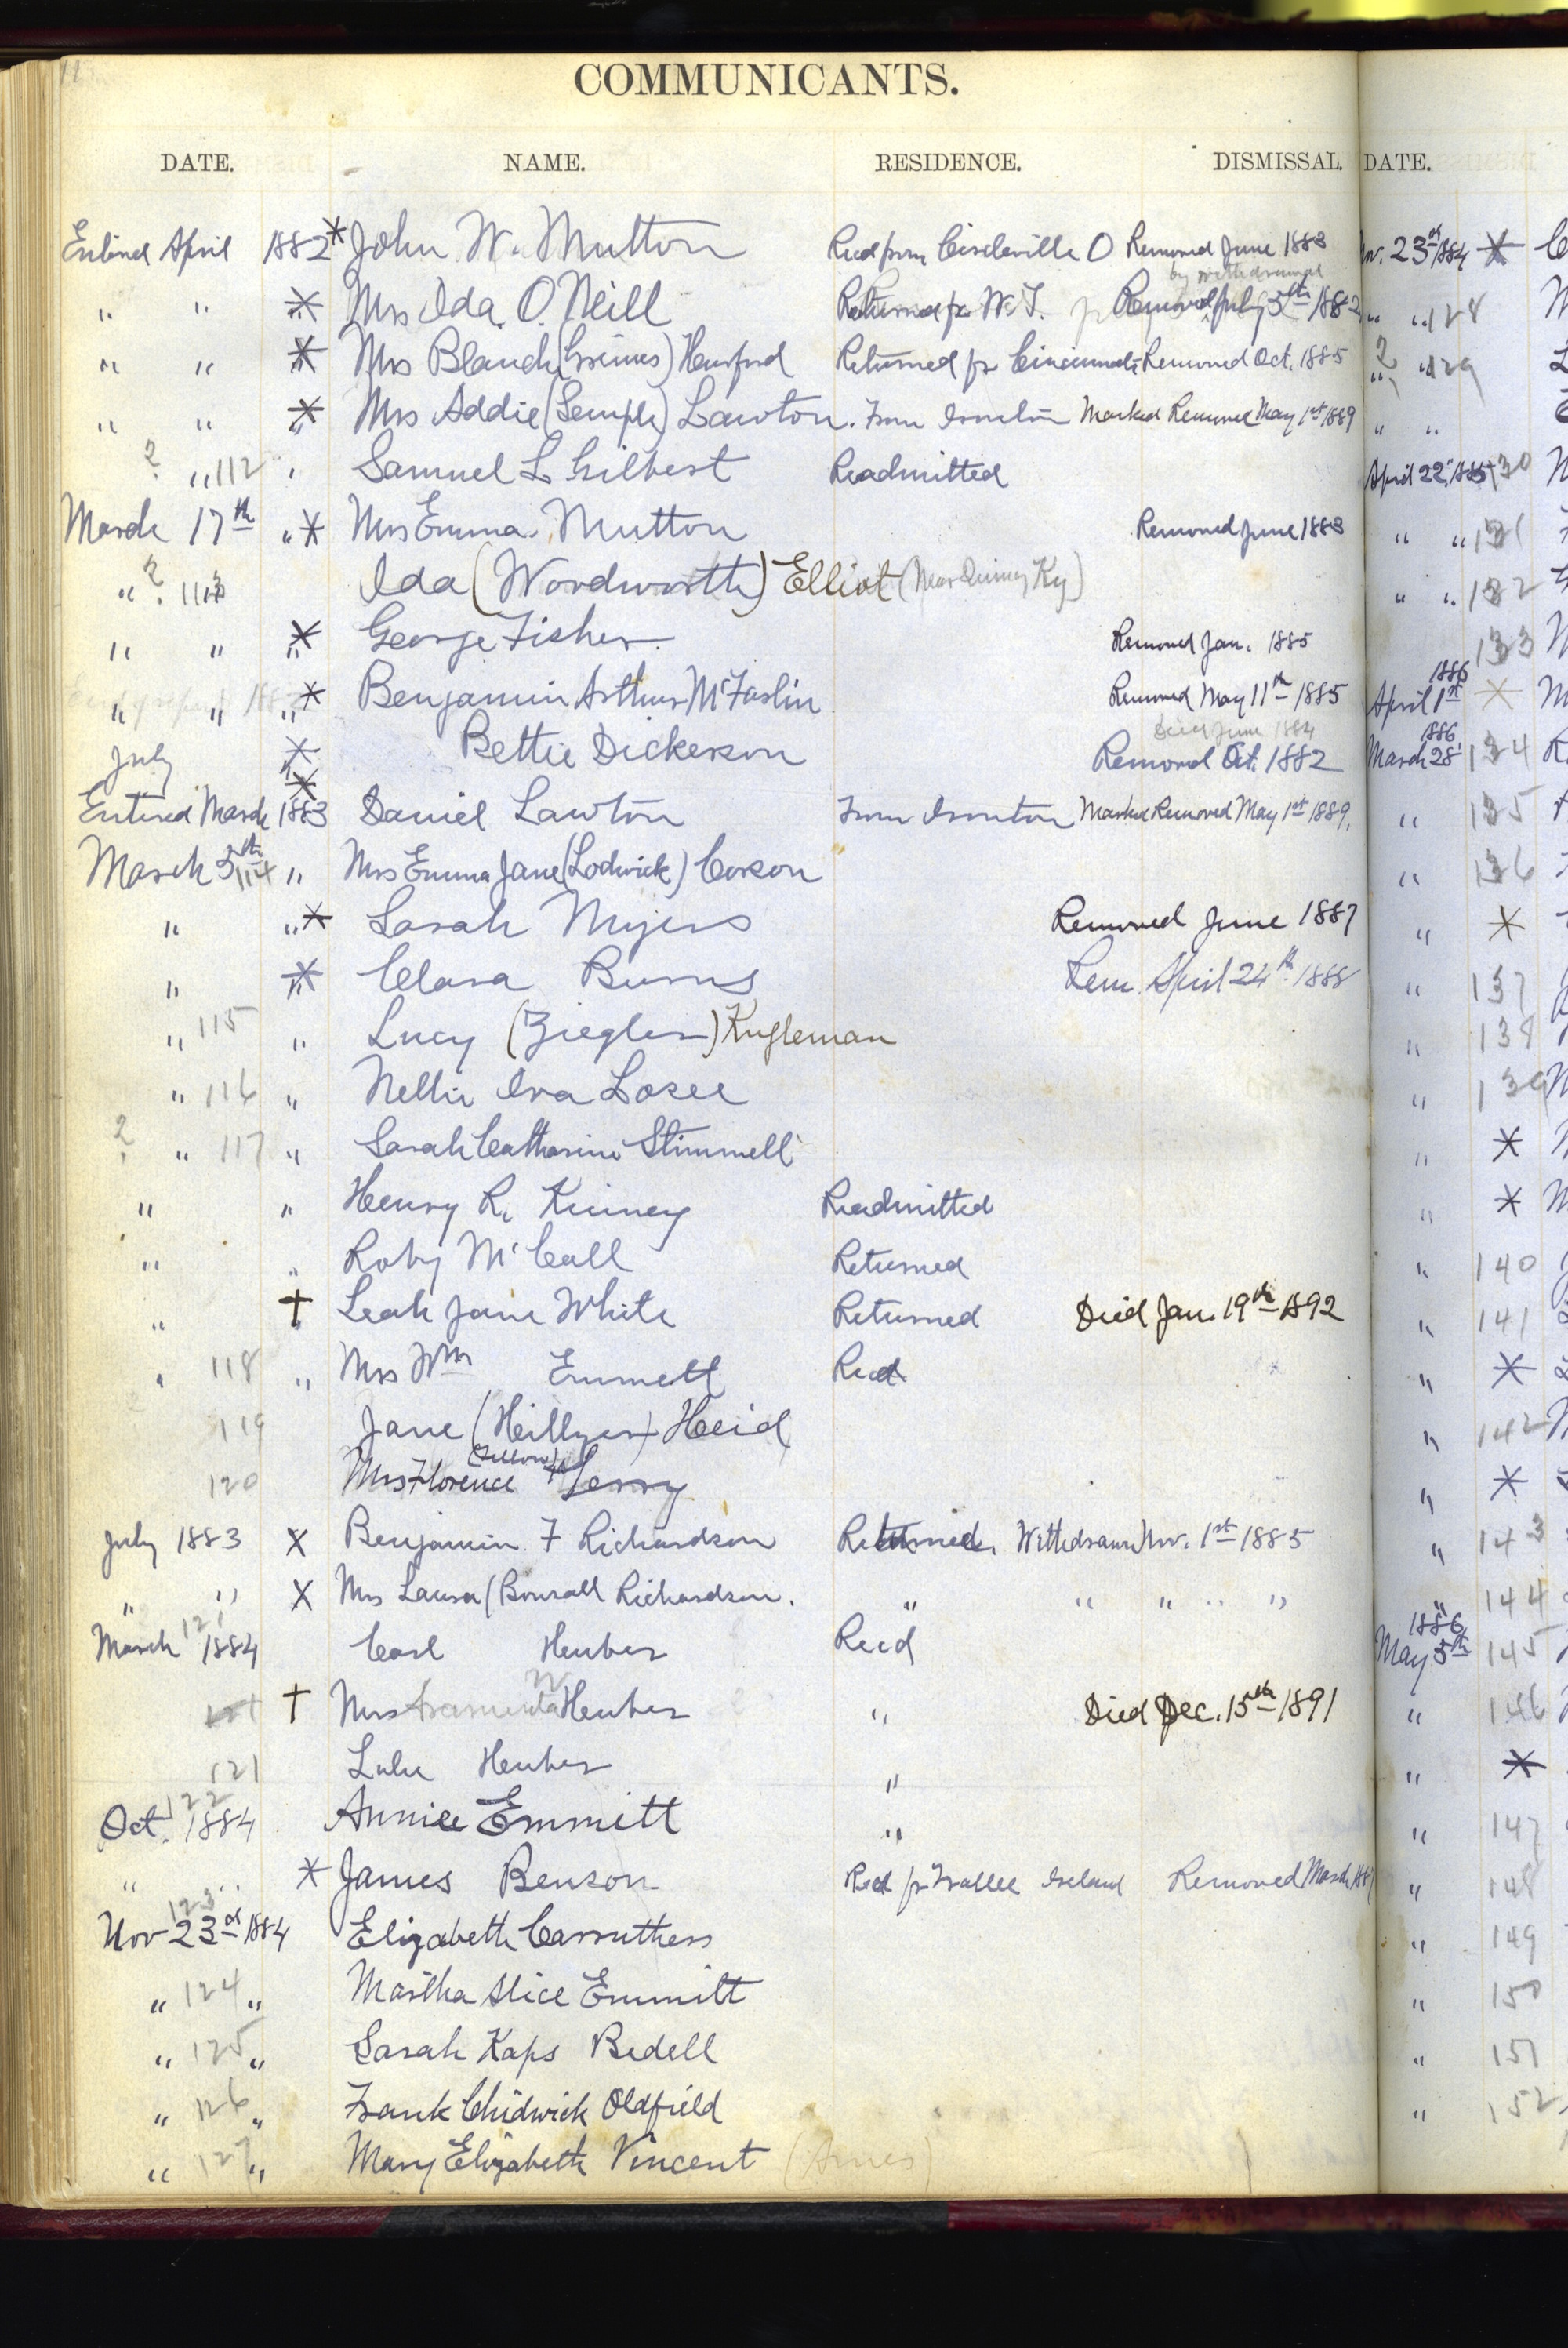 COMMUNICANTS.
DATE. NAME. RESIDENCE. DISMISSAL.
Entered April 1882 * John W. Mutton Recd from Circleville O Removed June 1883
by withdrawal
" " * Mrs Ida O. Neill Returned fr W. T. Removed July 5th 1882
" " * Mrs Blanch (Grimes) Hersford Returned fr Cincinnati Removed Oct. 1885
" " * Mrs Addie (Semple) Lawton. From Ironton Marked Removed May 1st 1889
? " 112 " Samuel L Gilbert Readmitted
March 17th " * Mrs Emma Mutton Removed June 1883
" ? 113 Ida (Wordworth) Elliot (Near Quincy Ky)
" " * George Fisher Removed Jan. 1885
" " " * Benjamin Arthur McFarlin Removed May 11th 1885
Died June 1884
July * Bettie Dickerson Removed Oct. 1882
Entered March 1883 * Daniel Lawton From Ironton Marked Removed May 1st 1889.
March 5th 114 " Mrs Emma Jane (Lodwick) Corson
" " * Sarah Myers Removed June 1887
" " * Clara Burns Rem. April 24th 1888
" 115 " Lucy (Ziegler) Kugleman
" 116 " Nellie Iva Losee
? " 117 " Sarah Catharine Stimmell
" " Henry R. Kinney Readmitted
" " Roby McCall Returned
" † Leah Jane White Returned Died Jan. 19th 1892
" 118 " Mrs Wm Emmett Recd.
119 Jane (Hillyer) Heid
120 Mrs Florence
July 1883 X Benjamin F Richardson Returned, Withdrawn Nov. 1st 1885
" " X Mrs Laura (Bonsall Richardson. " " " " "
121
March 1884 Carl Heuber Recd
† Mrs Araminta Heuber " Died Dec. 15th 1891
121 Lulu Heuber "
122
Oct. 1884 Annie Emmitt "
" " * James Benson Recd fr Trallee Ireland Removed March 1887
123
Nov 23rd 1884 Elizabeth Carruthers
" 124 " Martha Alice Emmitt
" 125 " Sarah Kaps Bedell
" 126 " Frank Chidwick Oldfield
" 127 " Mary Elizabeth Vincent (Ames)
DATE.
23rd 1884 *
" " 128
? " " 129
" "
April 22 1885 130
" " 131
" " 132
133
1886
April 1st *
1886
March 28 134
" 135
" 136
" *
" 137
" 138
" 139
" *
" *
" 140
" 141
" *
" 142
" *
" 143
" 144
1886
May 5th 145
" 146
" *
" 147
" 148
" 149
" 150
" 151
" 152